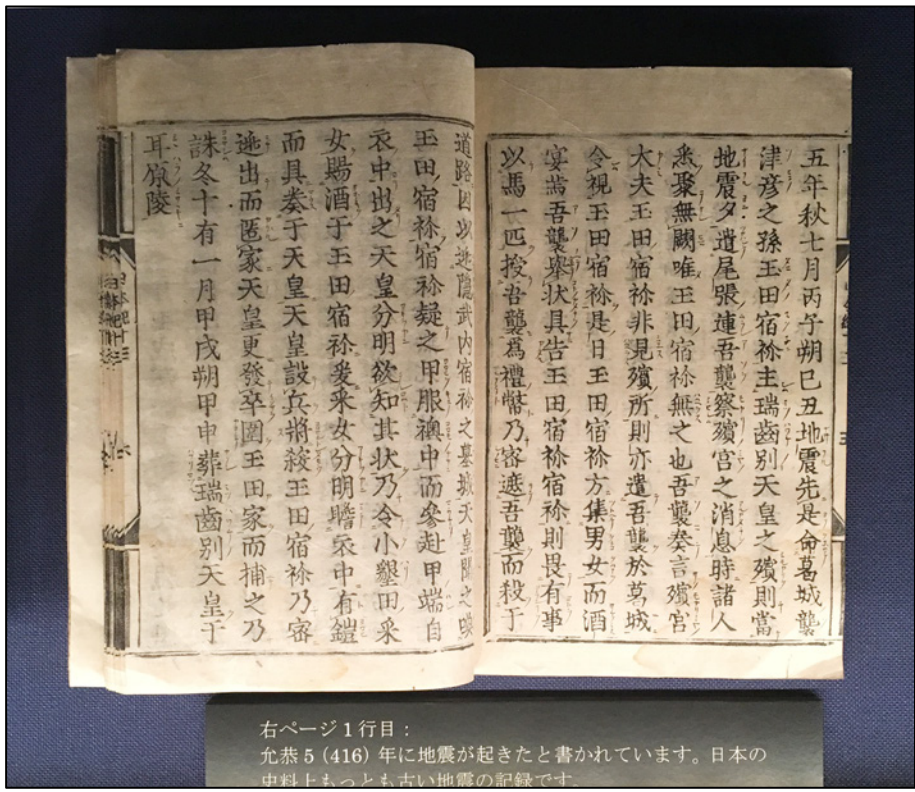 五年秋七月丙子朔己丑地震先是命葛城襲
津彦之孫玉田宿祢主瑞齒別天皇之殯則當
地震夕遣尾張連吾襲察殯宮之消息時諸人
悉聚無闕唯玉田宿祢無之也吾襲奏言殯宮
大夫玉田宿祢非見殯所則亦遣吾襲於葛城
令視玉田宿祢是日玉田宿祢方集男女而酒
宴焉吾襲擧状具告玉田宿祢宿祢則畏有事
以馬一匹授吾襲爲禮幣乃密遮吾襲而殺于
道路因以逃隱武内宿祢之墓域天皇聞之喚
玉田宿祢宿祢疑之甲服襖中而參赴甲端自
衣中出之天皇分明欲知其状乃令小墾田采
女賜酒于玉田宿祢爰采女分明瞻衣中有鎧
而具奏于天皇天皇設兵將殺玉田宿祢乃密
逃出而匿家天皇更發卒圍玉田家而捕之乃
誅冬十有一月甲戌朔甲申葬瑞齒別天皇于
耳原陵
日本紀
右ページ1行目：
允恭5（416）年に地震が起きたと書かれています。日本の
史料上もっとも古い地震の記録です。